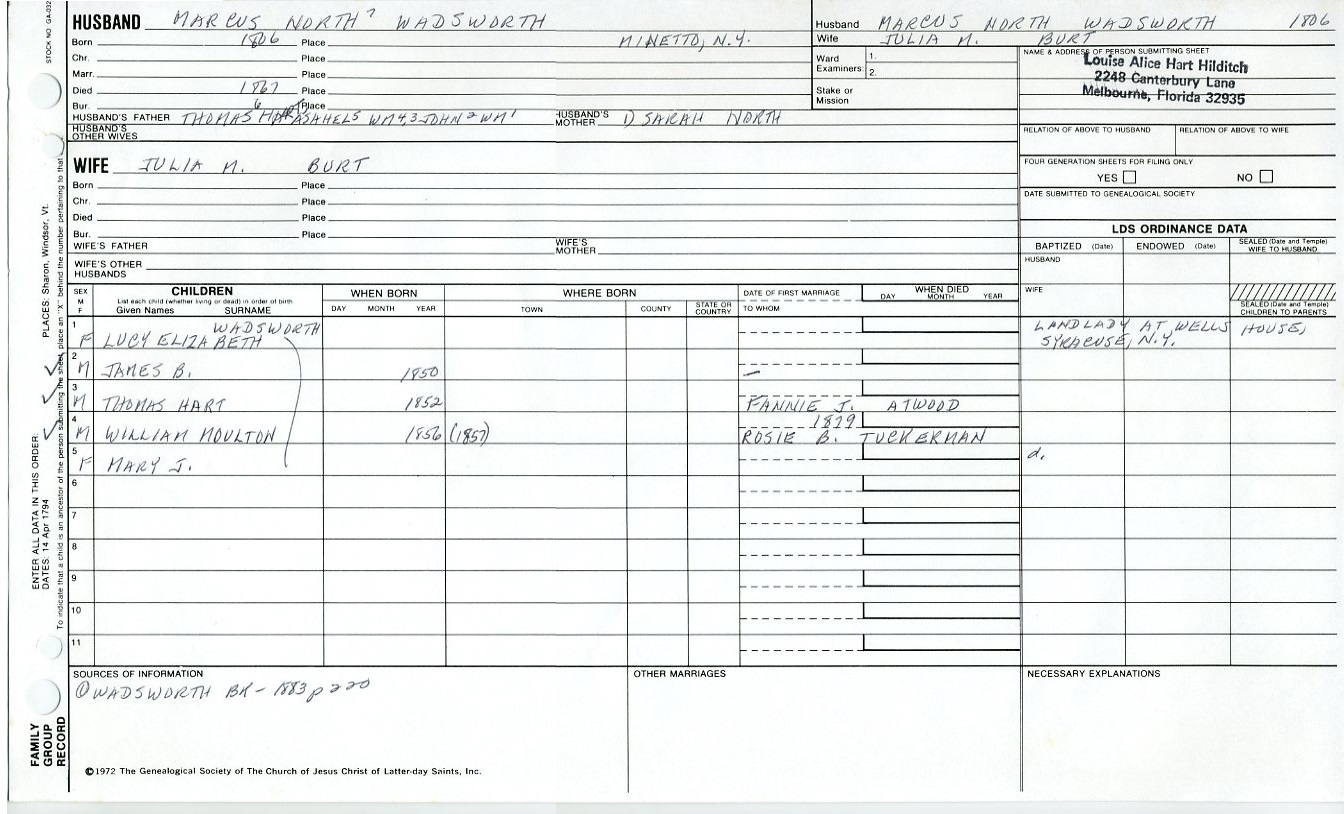 STOCK NO GA-032
HUSBAND MARCUS NORTH 7 WADSWORTH
Born 1806 Place MINETTO, N.Y.
Chr. Place
Marr. Place
Died 1867 Place
Bur. Place
HUSBAND'S FATHER THOMAS HART 6 ASAHEL 5 WM 4,3 JOHN 2 WM 1 HUSBAND'S MOTHER 1) SARAH NORTH
HUSBAND'S OTHER WIVES
Husband MARCUS NORTH WADSWORTH 1806
Wife JULIA M. BURT
Ward Examiners: 1.
2.
Stake or Mission
NAME & ADDRESS OF PERSON SUBMITTING SHEET
Louise Alice Hart Hilditch
2248 Canterbury Lane
Melbourne, Florida 32935
RELATION OF ABOVE TO HUSBAND RELATION OF ABOVE TO WIFE
FOUR GENERATION SHEETS FOR FILING ONLY
YES NO
DATE SUBMITTED TO GENEALOGICAL SOCIETY
WIFE JULIA M. BURT
Born Place
Chr. Place
Died Place
Bur. Place
WIFE'S FATHER WIFE'S MOTHER
WIFE'S OTHER HUSBANDS
LDS ORDINANCE DATA
BAPTIZED (Date) ENDOWED (Date) SEALED (Date and Temple) WIFE TO HUSBAND
HUSBAND
WIFE
SEALED (Date and Temple) CHILDREN TO PARENTS
SEX M F
CHILDREN
List each child (whether living or dead) in order of birth
Given Names SURNAME
WHEN BORN
DAY MONTH YEAR
WHERE BORN
TOWN COUNTY STATE OR COUNTRY
DATE OF FIRST MARRIAGE
TO WHOM
WHEN DIED
DAY MONTH YEAR
1 F LUCY ELIZABETH WADSWORTH LANDLADY AT WELLS HOUSE, SYRACUSE, N.Y.
2 M JAMES B. 1850 —
3 M THOMAS HART 1852 FANNIE J. ATWOOD
4 M WILLIAM MOULTON 1856 (1857) 1879 ROSIE B. TUCKERMAN
5 F MARY J. d.
6
7
8
9
10
11
SOURCES OF INFORMATION
① WADSWORTH BK - 1883 p 220
OTHER MARRIAGES
NECESSARY EXPLANATIONS
©1972 The Genealogical Society of The Church of Jesus Christ of Latter-day Saints, Inc.
FAMILY GROUP RECORD
ENTER ALL DATA IN THIS ORDER:
DATES: 14 Apr 1794
PLACES: Sharon, Windsor, Vt.
To indicate that a child is an ancestor of the person submitting the sheet, place an "X" behind the number pertaining to that